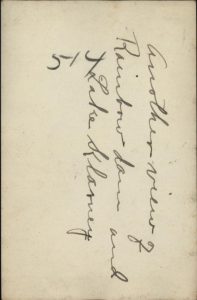 Another view of
Rainbow dam and
Lake Klamey
5